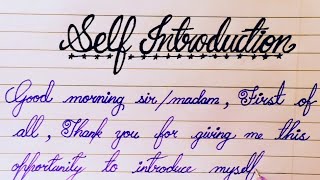 Self Introduction
Good morning sir/madam, First of
all, Thank you for giving me this
opportunity to introduce myself